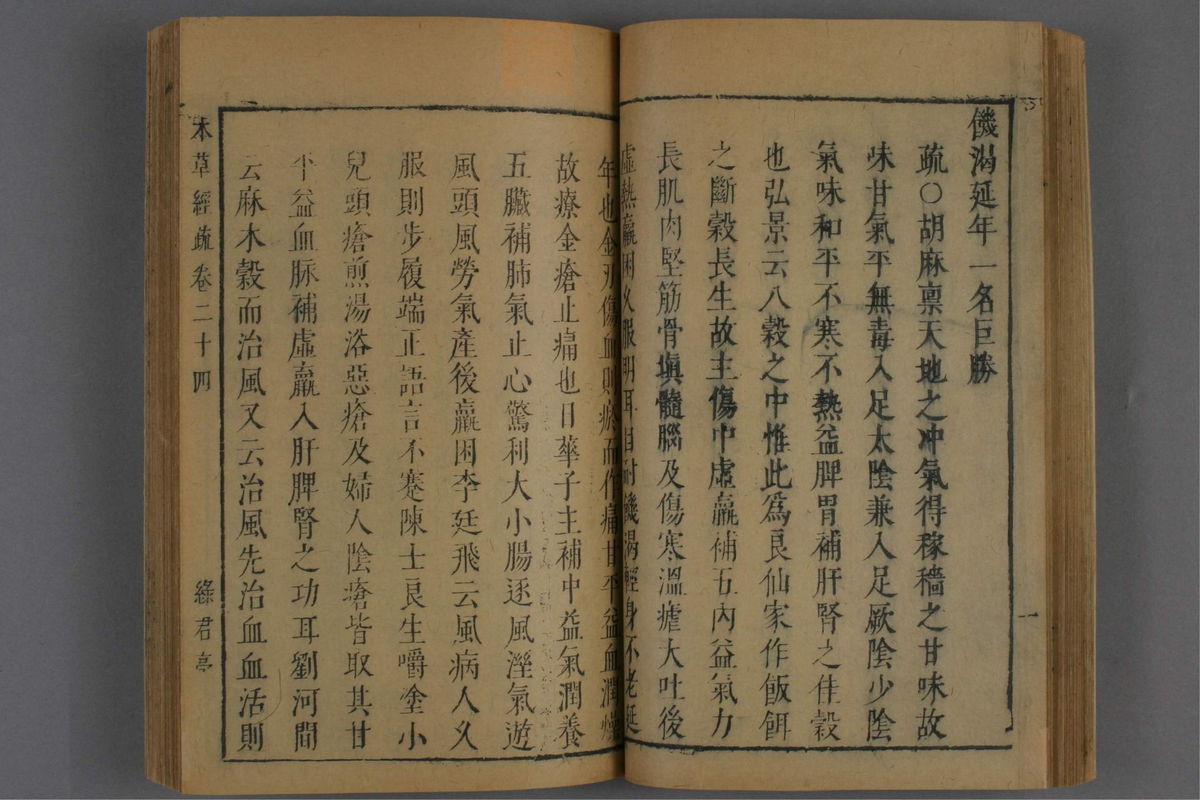 饑渴延年一名巨勝
疏○胡麻禀天地之冲氣得稼穡之甘味故
味甘氣平無毒入足太陰兼入足厥陰少陰
氣味和平不寒不熱益脾胃補肝腎之佳穀
也弘景云八穀之中惟此爲良仙家作飯餌
之斷穀長生故主傷中虛羸補五內益氣力
長肌肉堅筋骨塡髓腦及傷寒溫瘧大吐後
虛熱羸困久服明耳目耐饑渴輕身不老延
年也金刃傷血則瘀而作痛甘平益血潤燥
故療金瘡止痛也日華子主補中益氣潤養
五臟補肺氣止心驚利大小腸逐風溼氣遊
風頭風勞氣產後羸困李廷飛云風病人久
服則步履端正語言不蹇陳士良生嚼塗小
兒頭瘡煎湯浴惡瘡及婦人陰瘡皆取其甘
平益血脉補虛羸入肝脾腎之功耳劉河間
云麻木穀而治風又云治風先治血血活則
本草經疏卷二十四
綠君亭